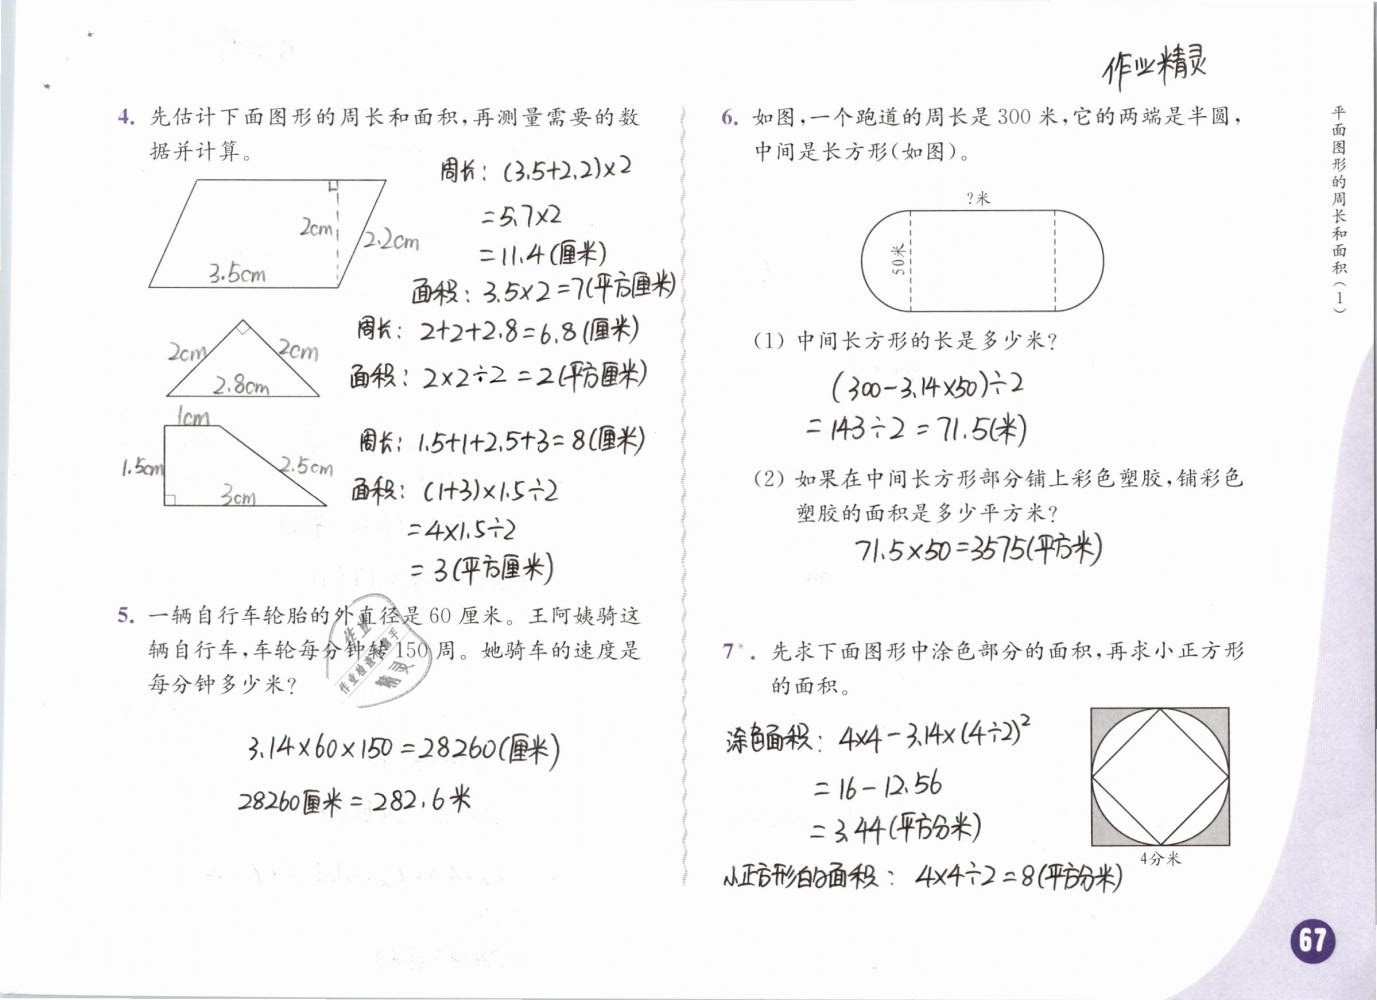 作业精灵
4. 先估计下面图形的周长和面积，再测量需要的数
据并计算。
周长：(3.5+2.2)×2
=5.7×2
=11.4(厘米)
面积：3.5×2=7(平方厘米)
2cm
2.2cm
3.5cm
周长：2+2+2.8=6.8(厘米)
面积：2×2÷2=2(平方厘米)
2cm
2cm
2.8cm
1cm
1.5cm
2.5cm
3cm
周长：1.5+1+2.5+3=8(厘米)
面积：(1+3)×1.5÷2
=4×1.5÷2
=3(平方厘米)
5. 一辆自行车轮胎的外直径是 60 厘米。王阿姨骑这
辆自行车，车轮每分钟转 150 周。她骑车的速度是
每分钟多少米？
作业
作业检查小助手
精灵
3.14×60×150=28260(厘米)
28260厘米=282.6米
6. 如图，一个跑道的周长是 300 米，它的两端是半圆，
中间是长方形(如图)。
?米
50米
(1) 中间长方形的长是多少米？
(300-3.14×50)÷2
=143÷2=71.5(米)
(2) 如果在中间长方形部分铺上彩色塑胶，铺彩色
塑胶的面积是多少平方米？
71.5×50=3575(平方米)
7*. 先求下面图形中涂色部分的面积，再求小正方形
的面积。
涂色面积：4×4-3.14×(4÷2)²
=16-12.56
=3.44(平方分米)
4分米
小正方形的面积：4×4÷2=8(平方分米)
平面图形的周长和面积(1)
67